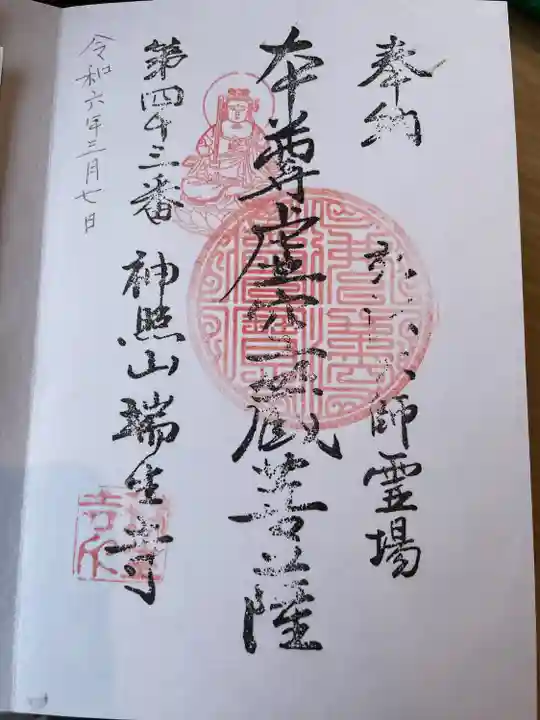 奉納 弘法大師霊場
本尊虚空蔵菩薩
第四十三番 神照山瑞生寺
令和六年三月七日